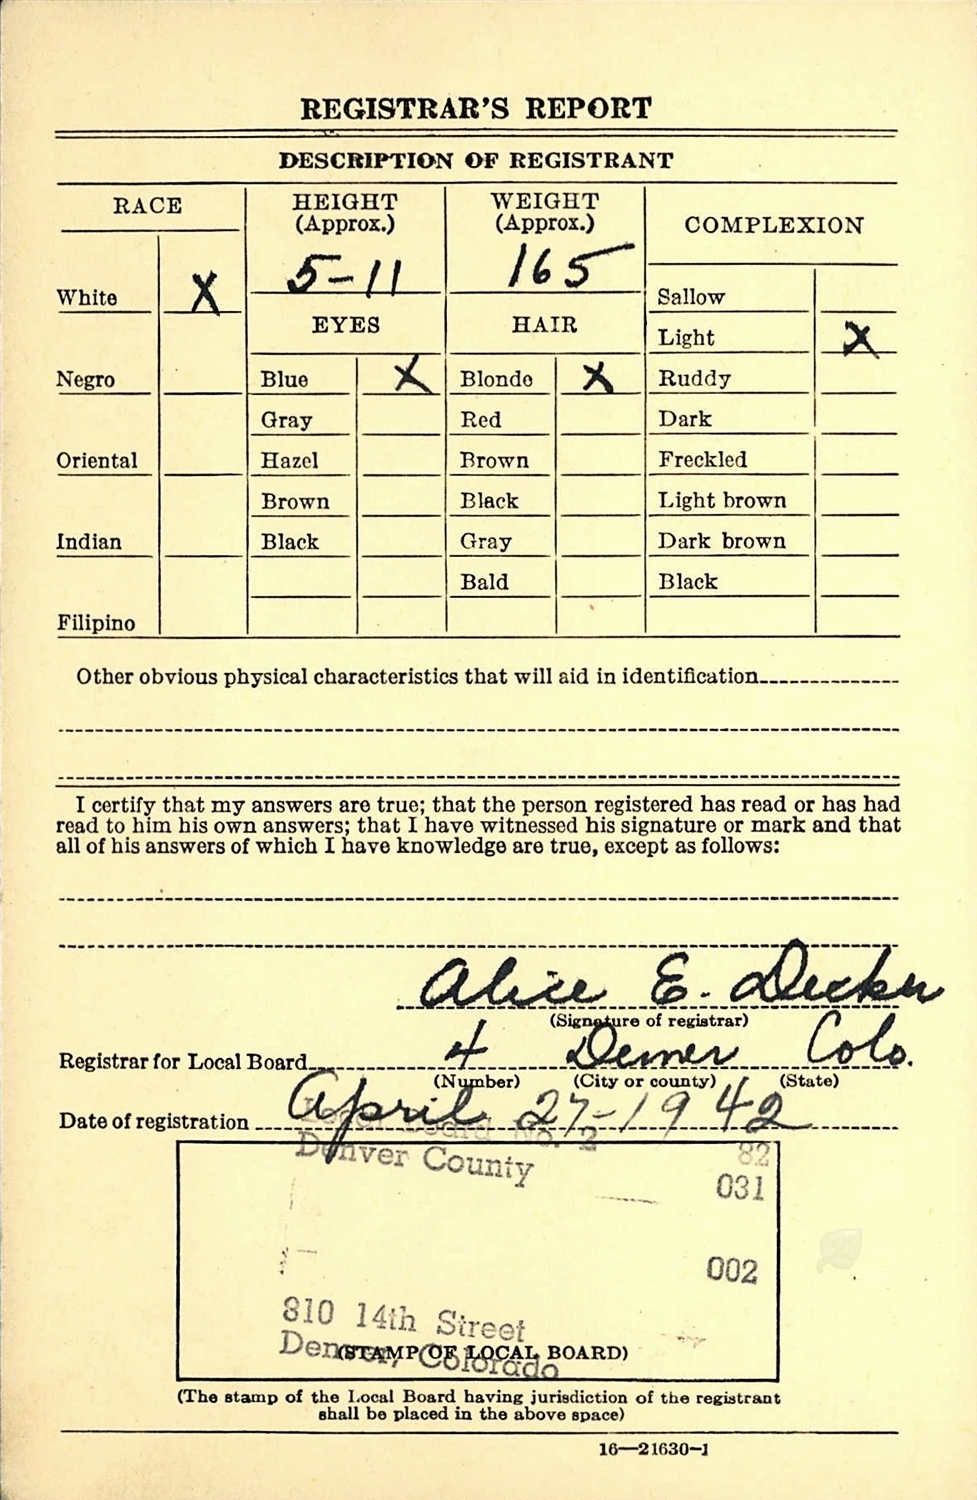 REGISTRAR'S REPORT
DESCRIPTION OF REGISTRANT
RACE
HEIGHT
(Approx.)
WEIGHT
(Approx.)
COMPLEXION
5-11
165
White X
Sallow
EYES
HAIR
Light X
Negro
Blue X
Blonde X
Ruddy
Gray
Red
Dark
Oriental
Hazel
Brown
Freckled
Brown
Black
Light brown
Indian
Black
Gray
Dark brown
Bald
Black
Filipino
Other obvious physical characteristics that will aid in identification
I certify that my answers are true; that the person registered has read or has had
read to him his own answers; that I have witnessed his signature or mark and that
all of his answers of which I have knowledge are true, except as follows:
Alice E. Decker
(Signature of registrar)
Registrar for Local Board 4 Denver Colo.
(Number) (City or county) (State)
Date of registration April 27-1942
Local Board No. 2
Denver County
82
031
002
810 14th Street
Denver, Colorado
(STAMP OF LOCAL BOARD)
(The stamp of the Local Board having jurisdiction of the registrant
shall be placed in the above space)
16—21630-1